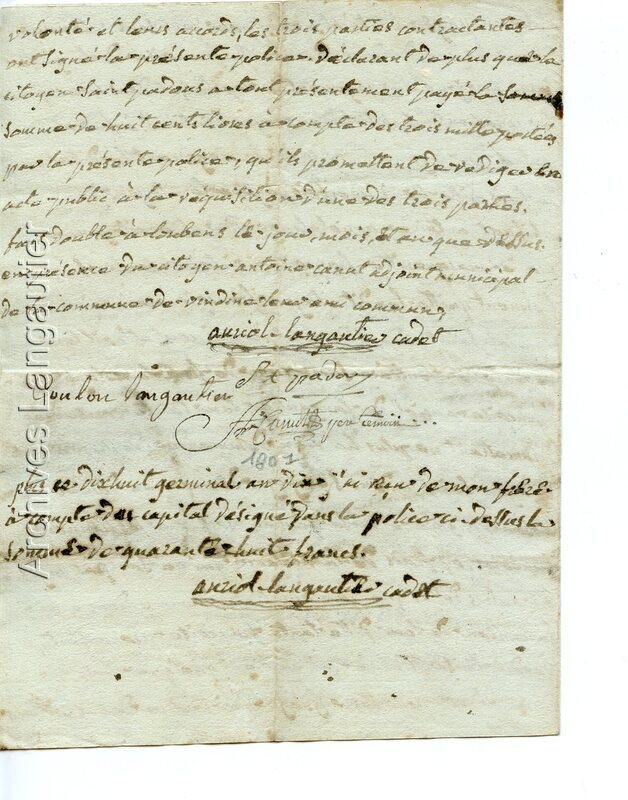 volonté et leurs accords, les trois parties contractantes
ont signé la présente police. déclarant de plus que le
citoyen Saint padous a tout présentement payé la somme
somme de huit cents livres à compte des trois mille portées
par la présente police, qu'ils promettent de rediger en
acte public à la réquisition d'une des trois parties.
fait double à loubens le jour, mois, et an que dessus.
en présence du citoyen antoine canut adjoint municipal
de la commune de vindine leur ami commun,
auriol-langautier cadet
St padou
oulou langautier
Ane Canut pr temoin
1801
ce dixhuit germinal an dix j'ai reçu de mon frere
à compte des capital désigné dans la police ci-dessus la
somme de quarante huit francs.
auriol-langautier cadet
Archives Langautier